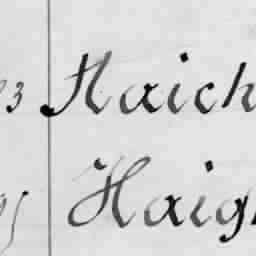 3 Haich
95 Haigh